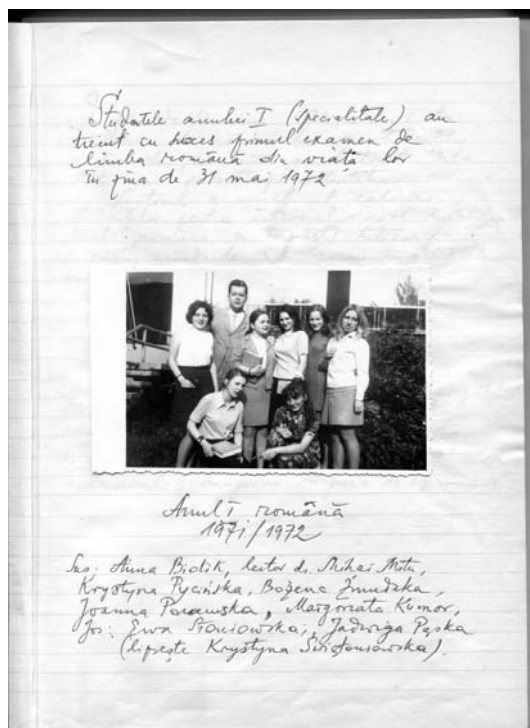 Studentele anului I (specialitate) au
trecut cu succes primul examen de
limba română din viața lor
în ziua de 31 mai 1972
Anul I română
1971/1972
Sus: Anna Bidik, lector dr. Mihai Mitu,
Krystyna Pycińska, Bożena Żmudzka,
Joanna Porawska, Małgorzata Komor,
Jos: Ewa Stoniowska, Jadwiga Pąska
(lipsește Krystyna Świętoniowska).